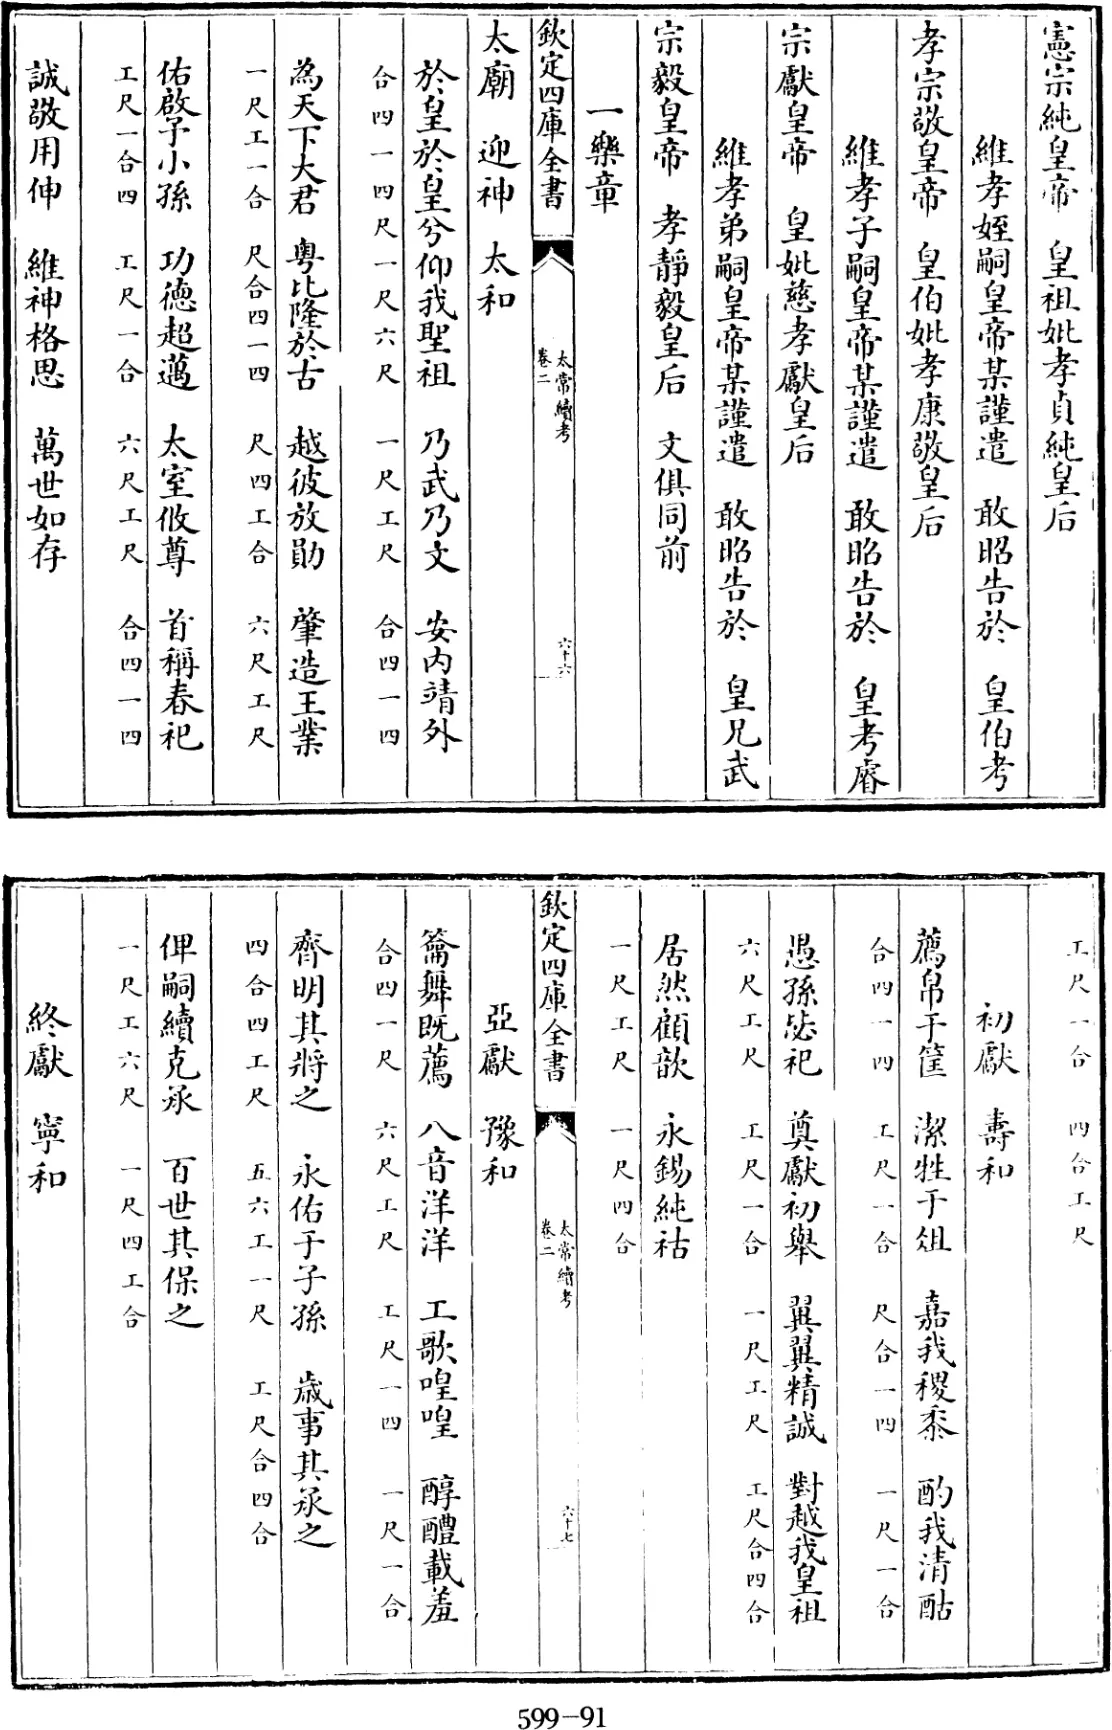 憲宗純皇帝　皇祖妣孝貞純皇后
維孝姪嗣皇帝某謹遣　敢昭告於　皇伯考
孝宗敬皇帝　皇伯妣孝康敬皇后
維孝子嗣皇帝某謹遣　敢昭告於　皇考睿
宗獻皇帝　皇妣慈孝獻皇后
維孝弟嗣皇帝某謹遣　敢昭告於　皇兄武
宗毅皇帝　孝靜毅皇后　文俱同前
一樂章
欽定四庫全書　太常續考　卷二　六十六
太廟　迎神　太和
於皇於皇兮仰我聖祖　乃武乃文　安內靖外
合四一四尺一尺六尺　一尺工尺　合四一四
為天下大君　粵比隆於古　越彼放勛　肇造王業
一尺工一合　尺合四一四　尺四工合　六尺工尺
佑啟予小孫　功德超邁　太室攸尊　首稱春祀
工尺一合四　工尺一合　六尺工尺　合四一四
誠敬用伸　維神格思　萬世如存
工尺一合　四合工尺
初獻　壽和
薦帛于筐　潔牲于俎　嘉我稷黍　酌我清酤
合四一四　工尺一合　尺合一四　一尺一合
愚孫毖祀　奠獻初舉　翼翼精誠　對越我皇祖
六尺工尺　工尺一合　一尺工尺　工尺合四合
居然顧歆　永錫純祜
一尺工尺　一尺四合
欽定四庫全書　太常續考　卷二　六十七
亞獻　豫和
籥舞既薦　八音洋洋　工歌喤喤　醇醴載羞
合四一尺　六尺工尺　工尺一四　一尺一合
齊明其將之　永佑于子孫　歲事其承之
四合四工尺　五六工一尺　工尺合四合
俾嗣續克承　百世其保之
一尺工六尺　一尺四工合
終獻　寧和
599-91